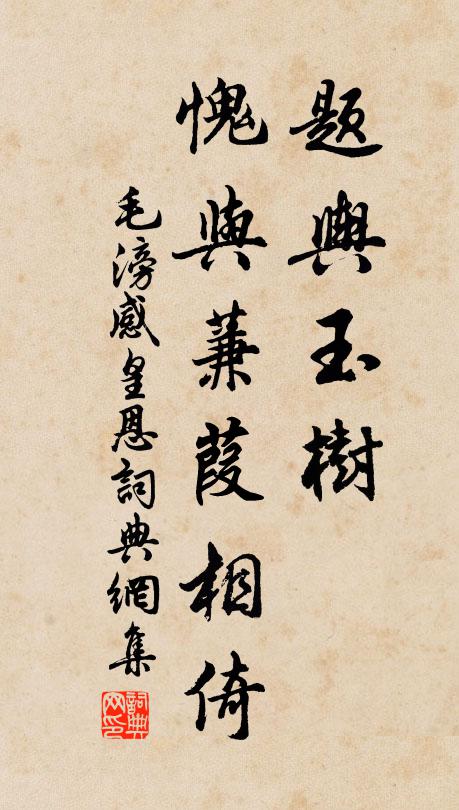 題輿玉樹
愧與蒹葭相倚
毛滂感皇恩詞典網集
詞典
网印